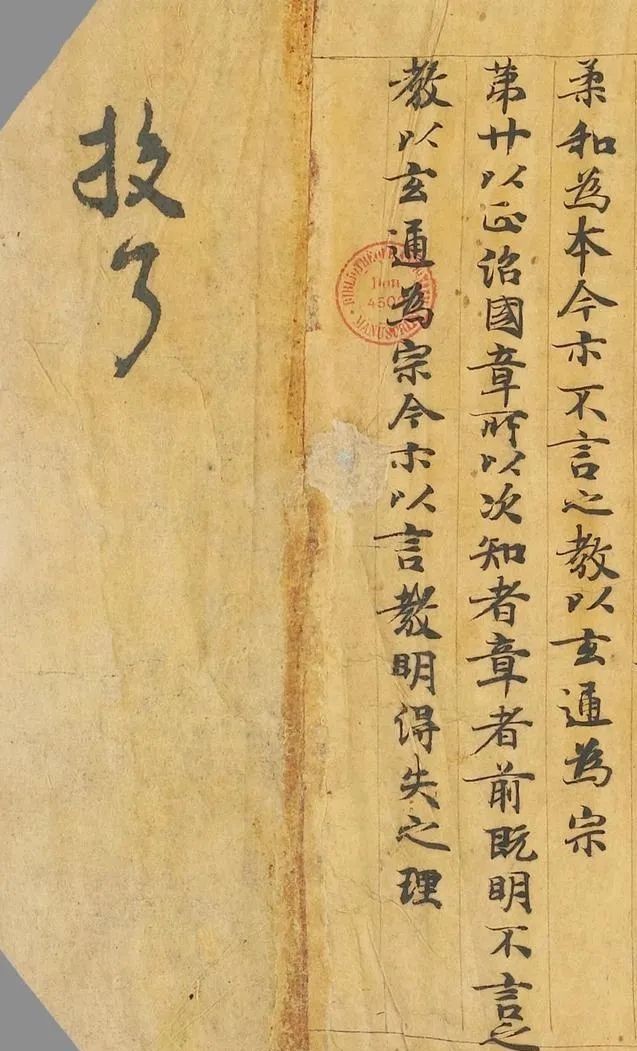 柔和為本今亦不言之教以玄通為宗
第廿以正治國章所以次知者章者前既明不言之
教以玄通為宗今亦以言教明得失之理
投了
Don